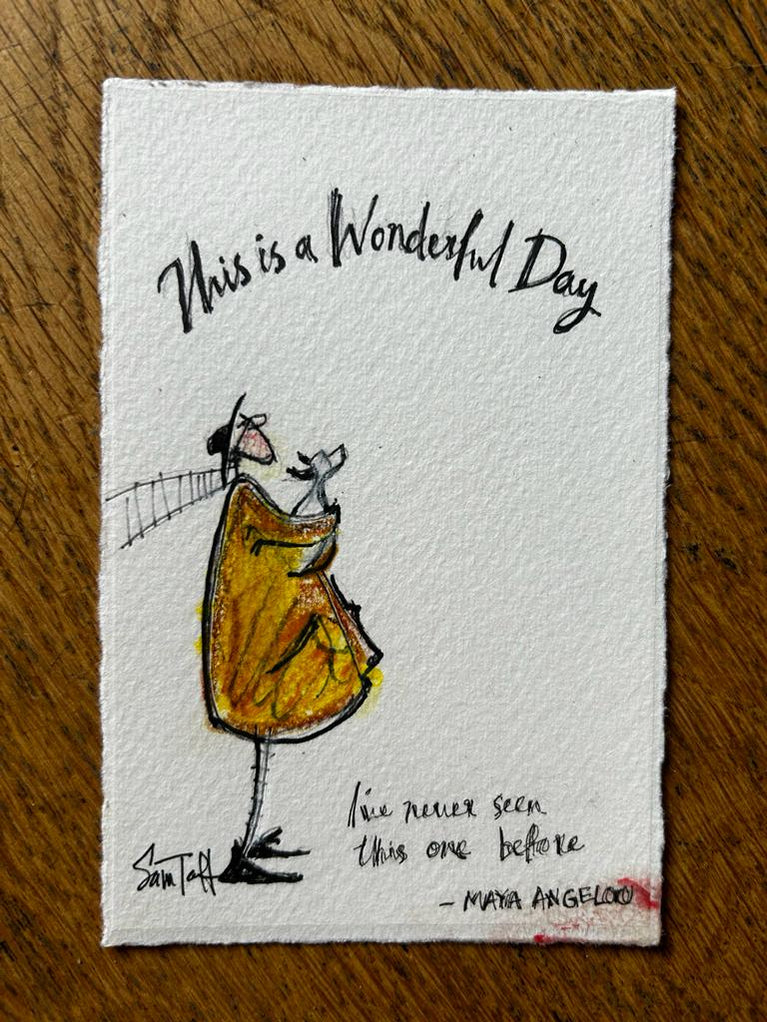 This is a Wonderful Day
I've never seen
this one before
SamToft
- MAYA ANGELOU